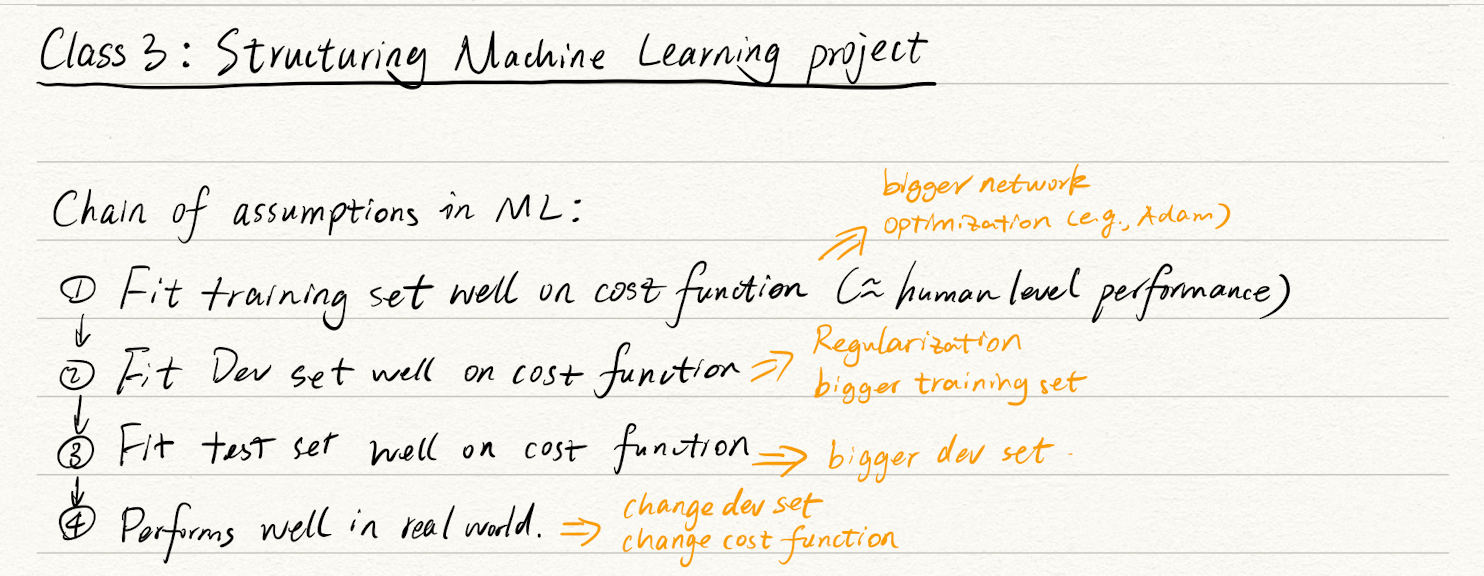 Class 3: Structuring Machine Learning project
Chain of assumptions in ML:
bigger network
optimization (e.g., Adam)
① Fit training set well on cost function (≈ human level performance)
② Fit Dev set well on cost function ⇒ Regularization
bigger training set
③ Fit test set well on cost function ⇒ bigger dev set.
④ Performs well in real world. ⇒ change dev set
change cost function